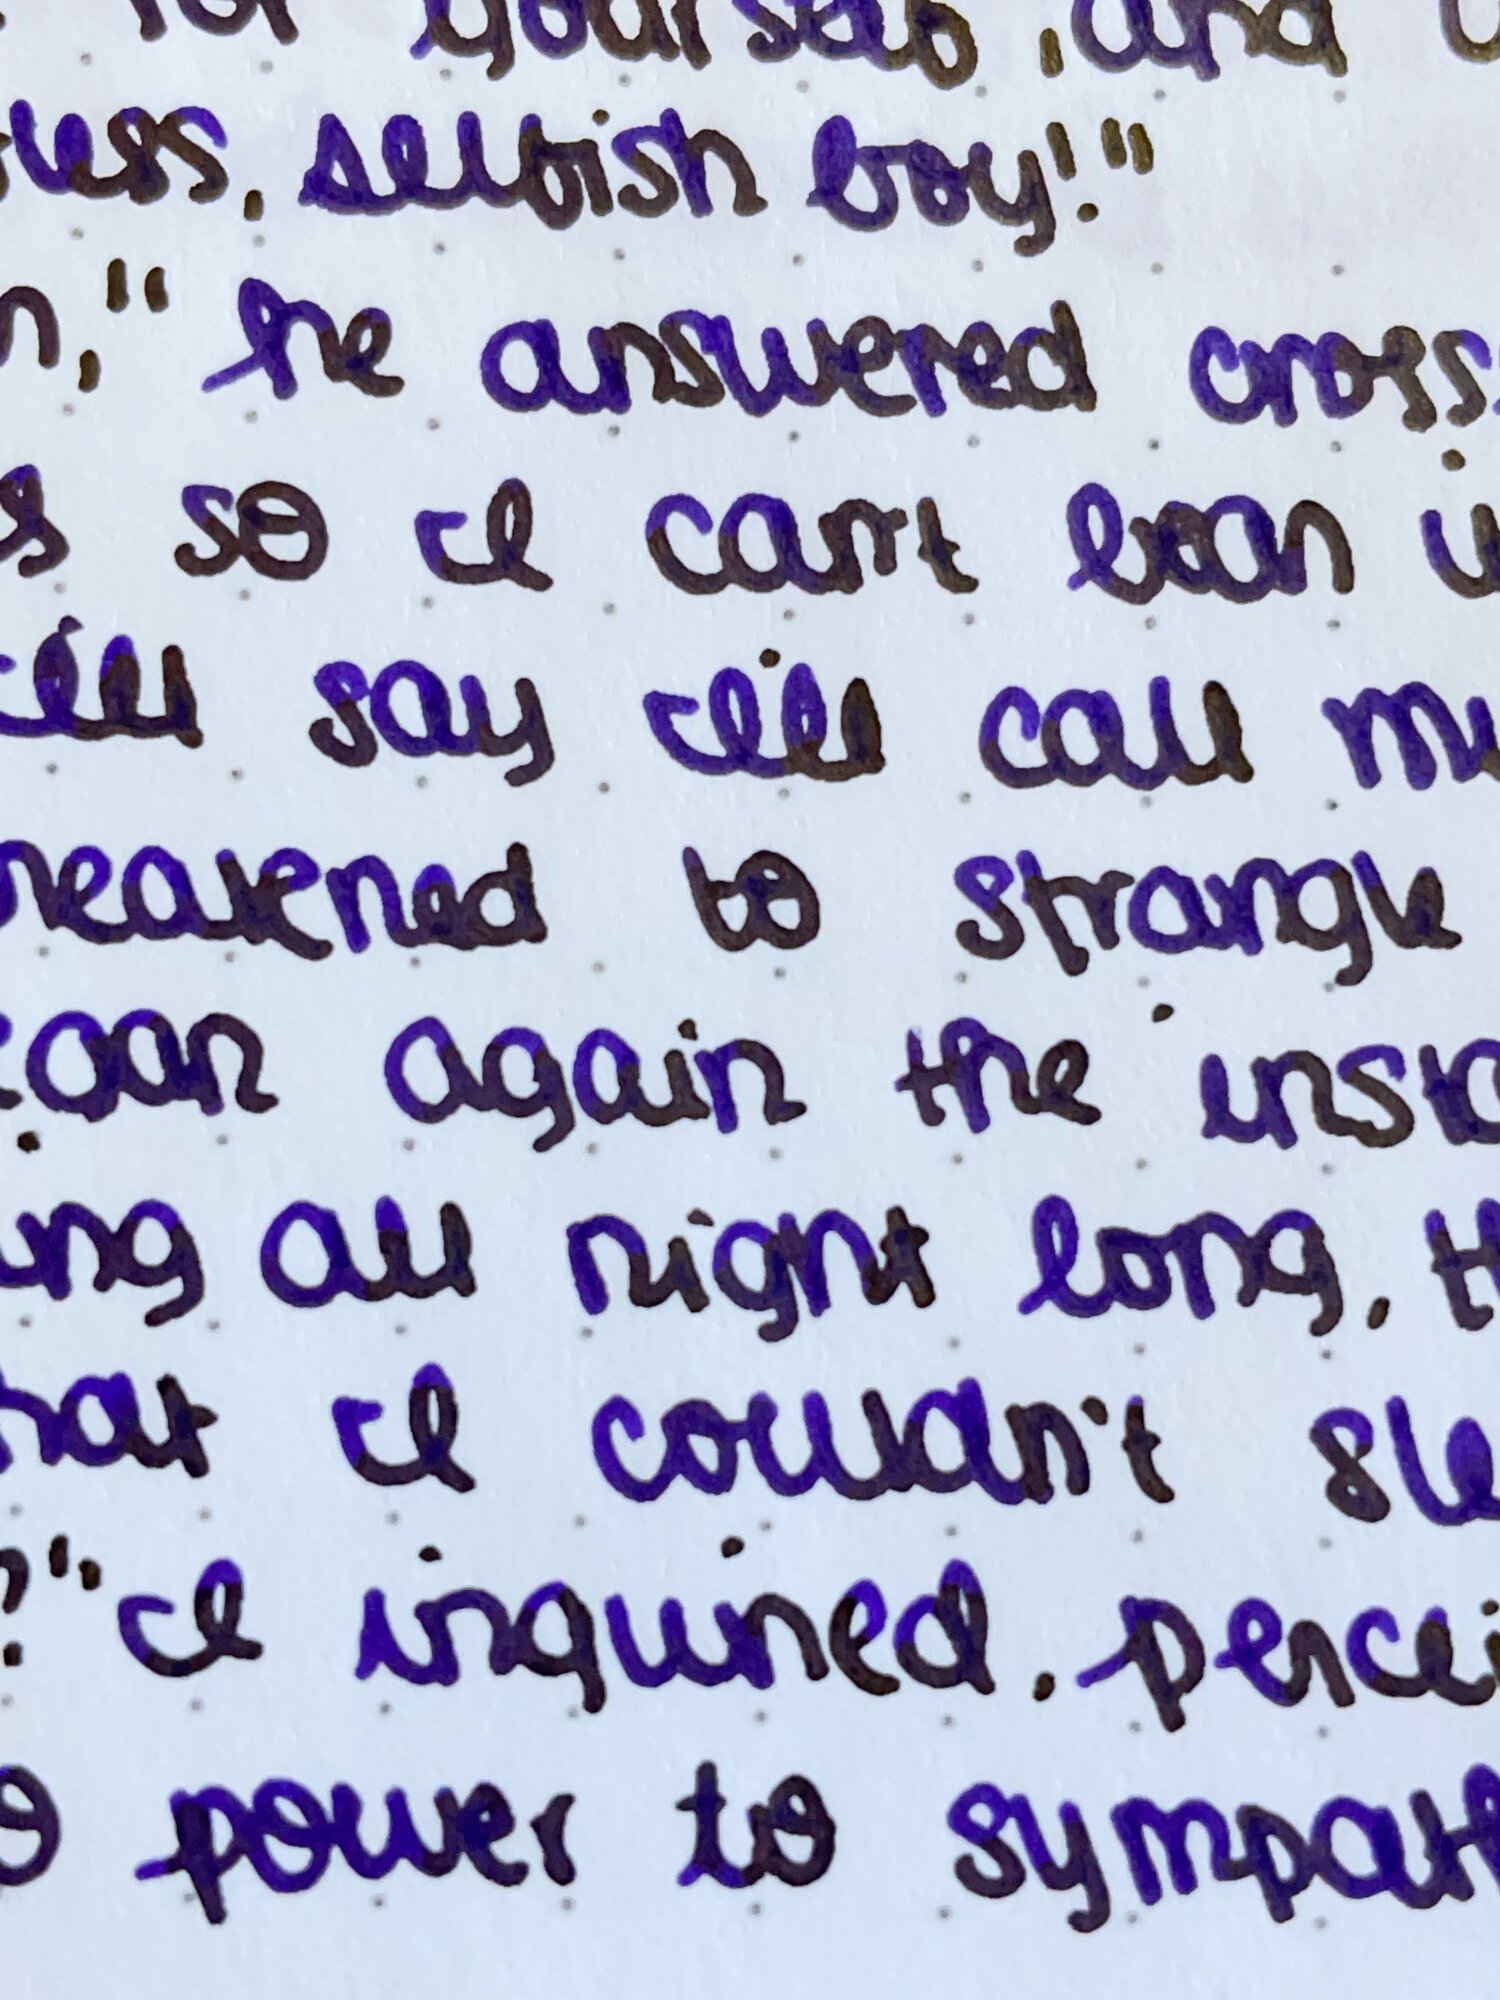 for yourselb, and
less, selbish boy!"
n," he answered cross
s so I can't bear i
I'll say I'll call mu
reatened to strangle
egan again the insta
ing all night long, th
hat I couldn't slee
?" I inquired, percei
o power to sympath